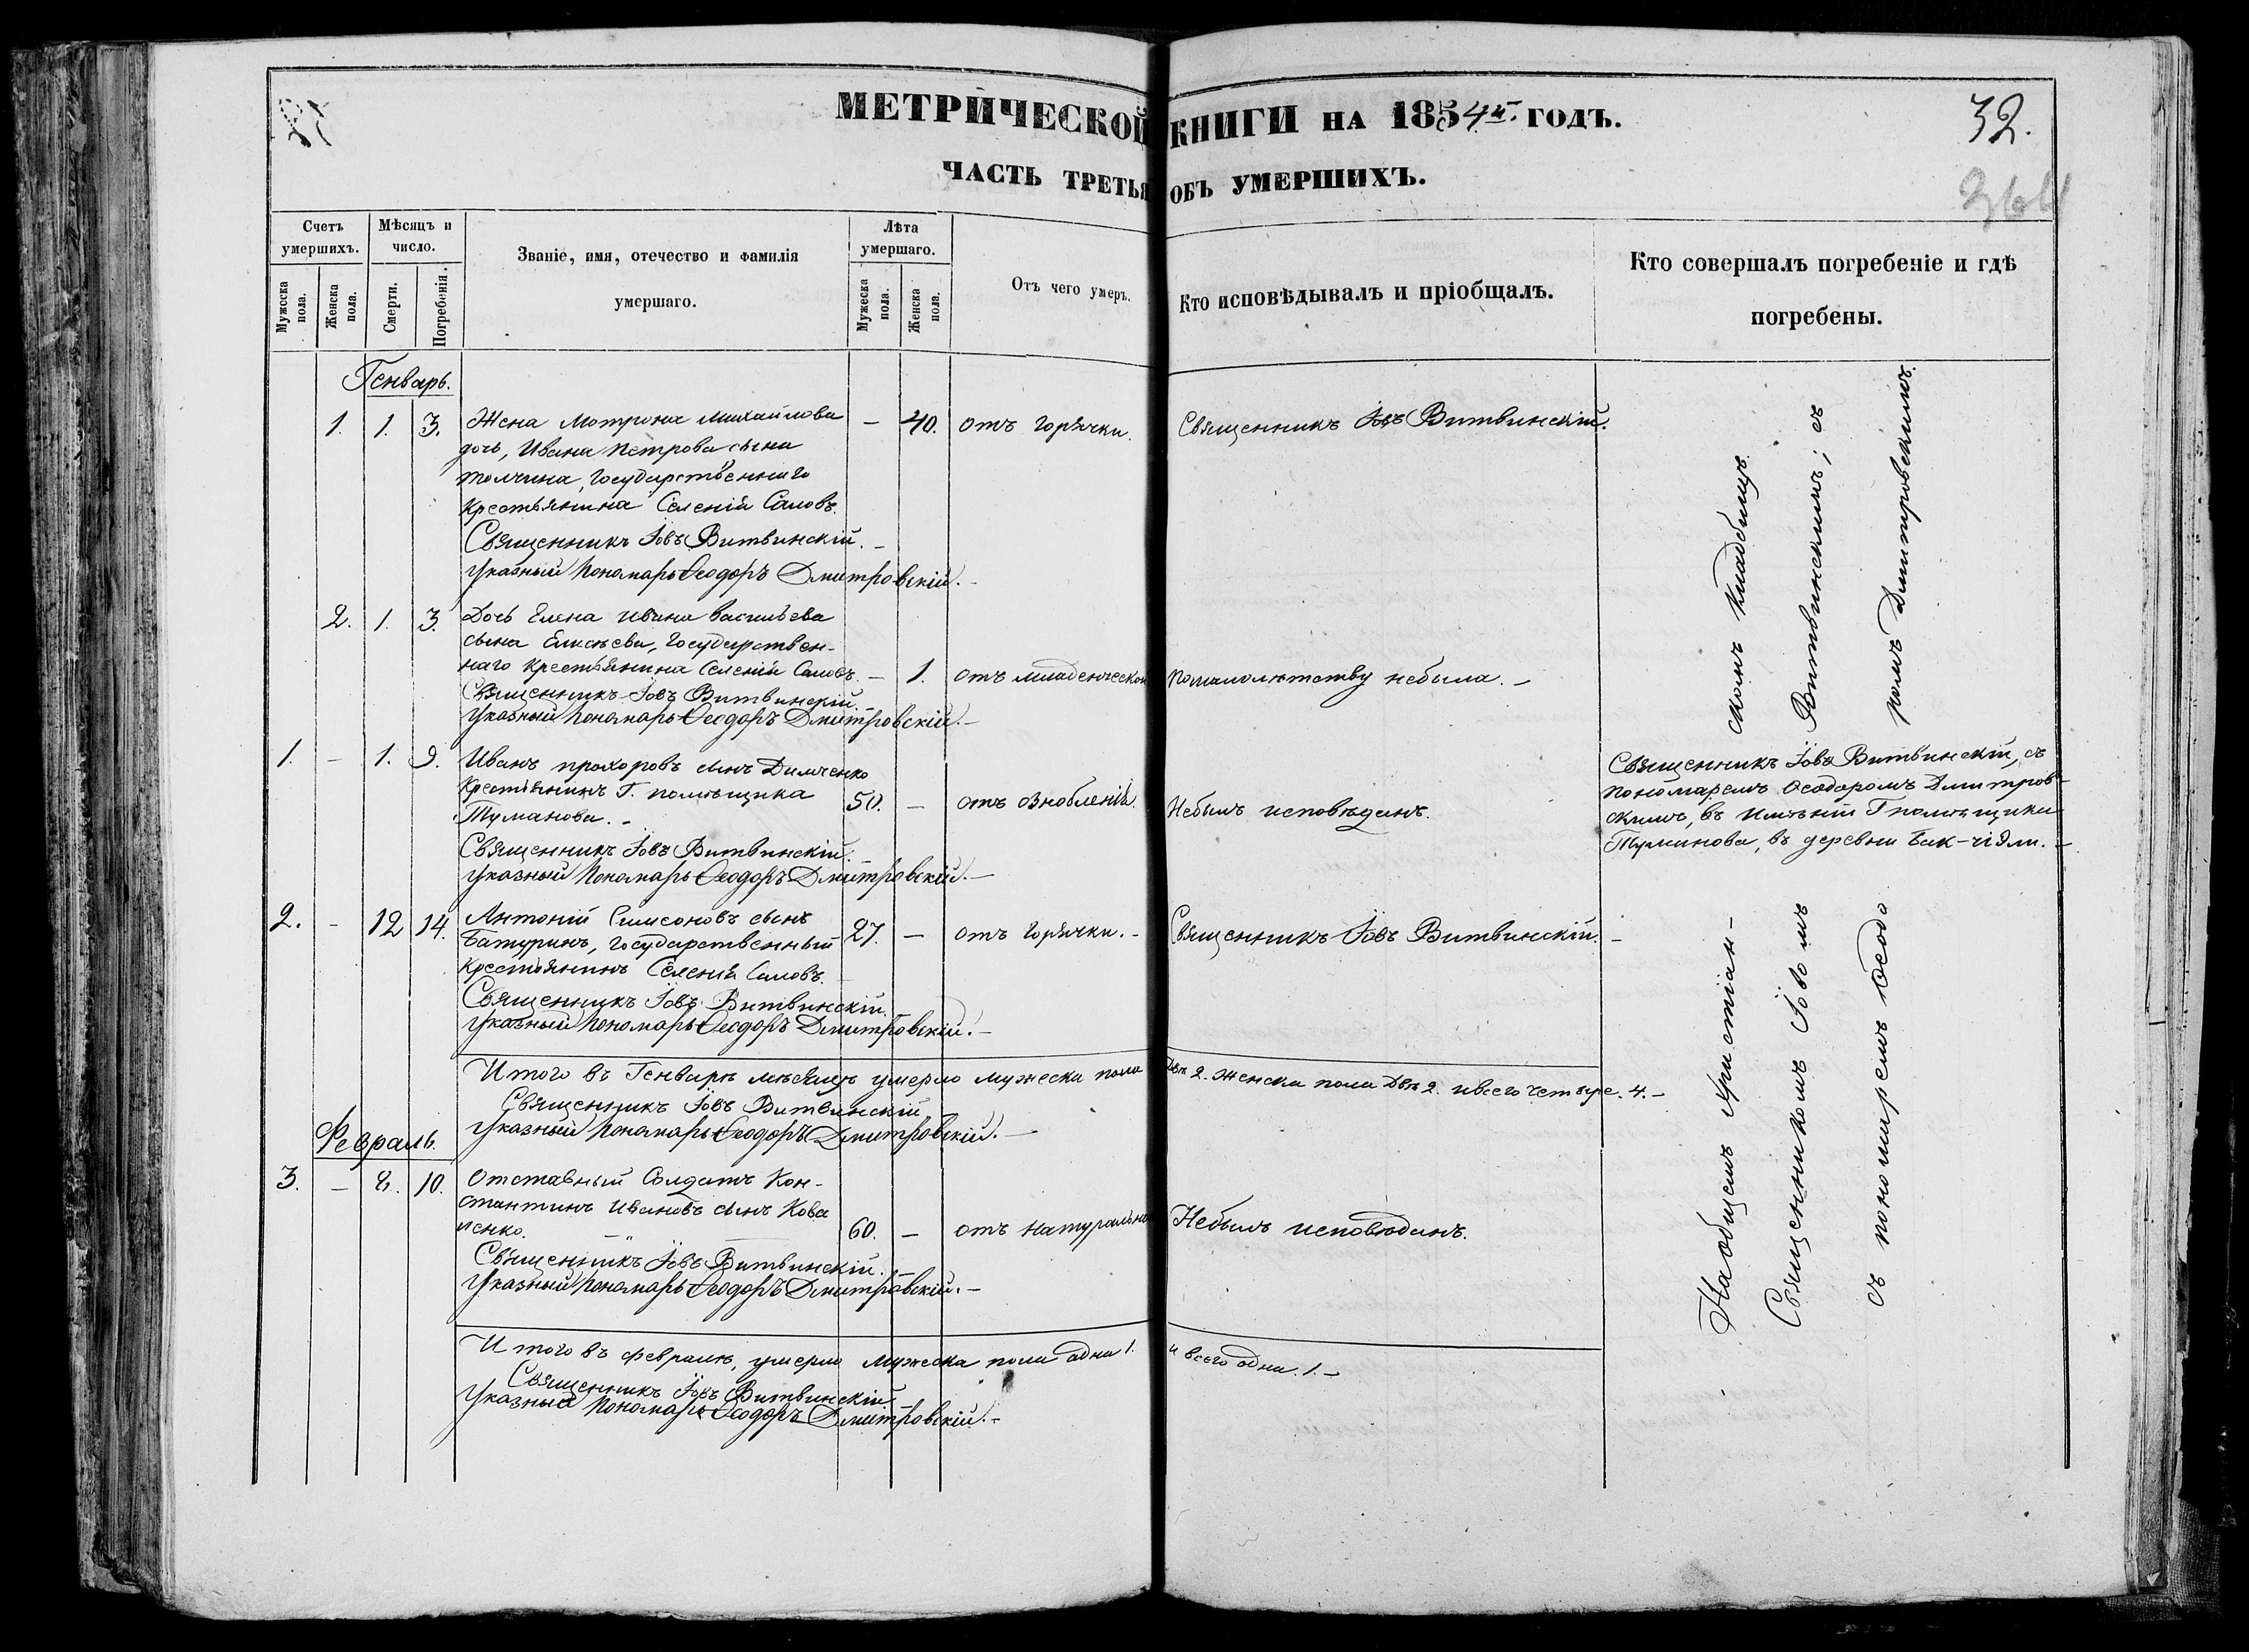 МЕТРИЧЕСКОЙ КНИГИ НА 1854й. ГОДЪ.
32.
ЧАСТЬ ТРЕТЬЯ ОБЪ УМЕРШИХЪ.
364
Счетъ умершихъ.
Мужеска пола.
Женска пола.
Мѣсяцъ и число.
Смерти.
Погребенія.
Званіе, имя, отечество и фамилія
умершаго.
Лѣта умершаго.
Мужеска пола.
Женска пола.
Отъ чего умеръ.
Кто исповѣдывалъ и пріобщалъ.
Кто совершалъ погребеніе и гдѣ
погребены.
Генварь.
1. 1. 3. Жена Мотрона Михайлова — 40. отъ горячки. Священникъ Іовъ Витвинскій.
дочь, Ивана Петрова сына
Толчина, Государственнаго
Крестьянина Селенія Саловъ.
Священникъ Іовъ Витвинскій. –
Указный Пономарь Ѳеодоръ Дмитровскій. –
2. 1. 3. Дочь Елена Ивана Васильева
сына Елисѣева, Государствен-
наго Крестьянина Селенія Саловъ. — 1. отъ младенческой Помалолѣтству небыла. –
Священникъ Іовъ Витвинскій. –
Указный Пономарь Ѳеодоръ Дмитровскій. –
1. – 1. 9. Иванъ Прохоровъ сынъ Димченко
Крестьянинъ Г. помѣщика 50. — отъ ознобленія. Небылъ исповѣданъ.
Туманова. –
Священникъ Іовъ Витвинскій. –
Указный Пономарь Ѳеодоръ Дмитровскій. –
Священникъ Іовъ Витвинскій, съ
пономаремъ Ѳеодоромъ Дмитров-
скимъ, въ имѣніи Г помѣщика
Туманова, въ деревни
2. – 12 14. Антоній Симеоновъ сынъ
Батуринъ, Государственный 27. — отъ горячки. – Священникъ Іовъ Витвинскій. –
Крестьянинъ Селенія Саловъ. –
Священникъ Іовъ Витвинскій.
Указный Пономарь Ѳеодоръ Дмитровскій. –
Итого въ Генварѣ мѣсяцѣ умерло мужеска пола Двѣ 2. Женска пола Двѣ 2. и всего четыре. 4. –
Священникъ Іовъ Витвинскій
Указный Пономарь Ѳеодоръ Дмитровскій. –
Февраль.
3. – 8. 10. Отставный Солдатъ Кон-
стантинъ Ивановъ сынъ Кова
ленко. 60. – отъ натуральной Небылъ исповѣданъ.
Священникъ Іовъ Витвинскій.
Указный Пономарь Ѳеодоръ Дмитровскій. –
Итого въ Февралѣ, умерло мужеска пола одна 1. и всего одна. 1. –
Священникъ Іовъ Витвинскій
Указный Пономарь Ѳеодоръ Дмитровскій. –
На общемъ христіан-скомъ кладбищѣ.
Священникомъ Іовомъ Витвинскимъ; съ
съ пономаремъ Ѳеодоромъ Дмитровскимъ.